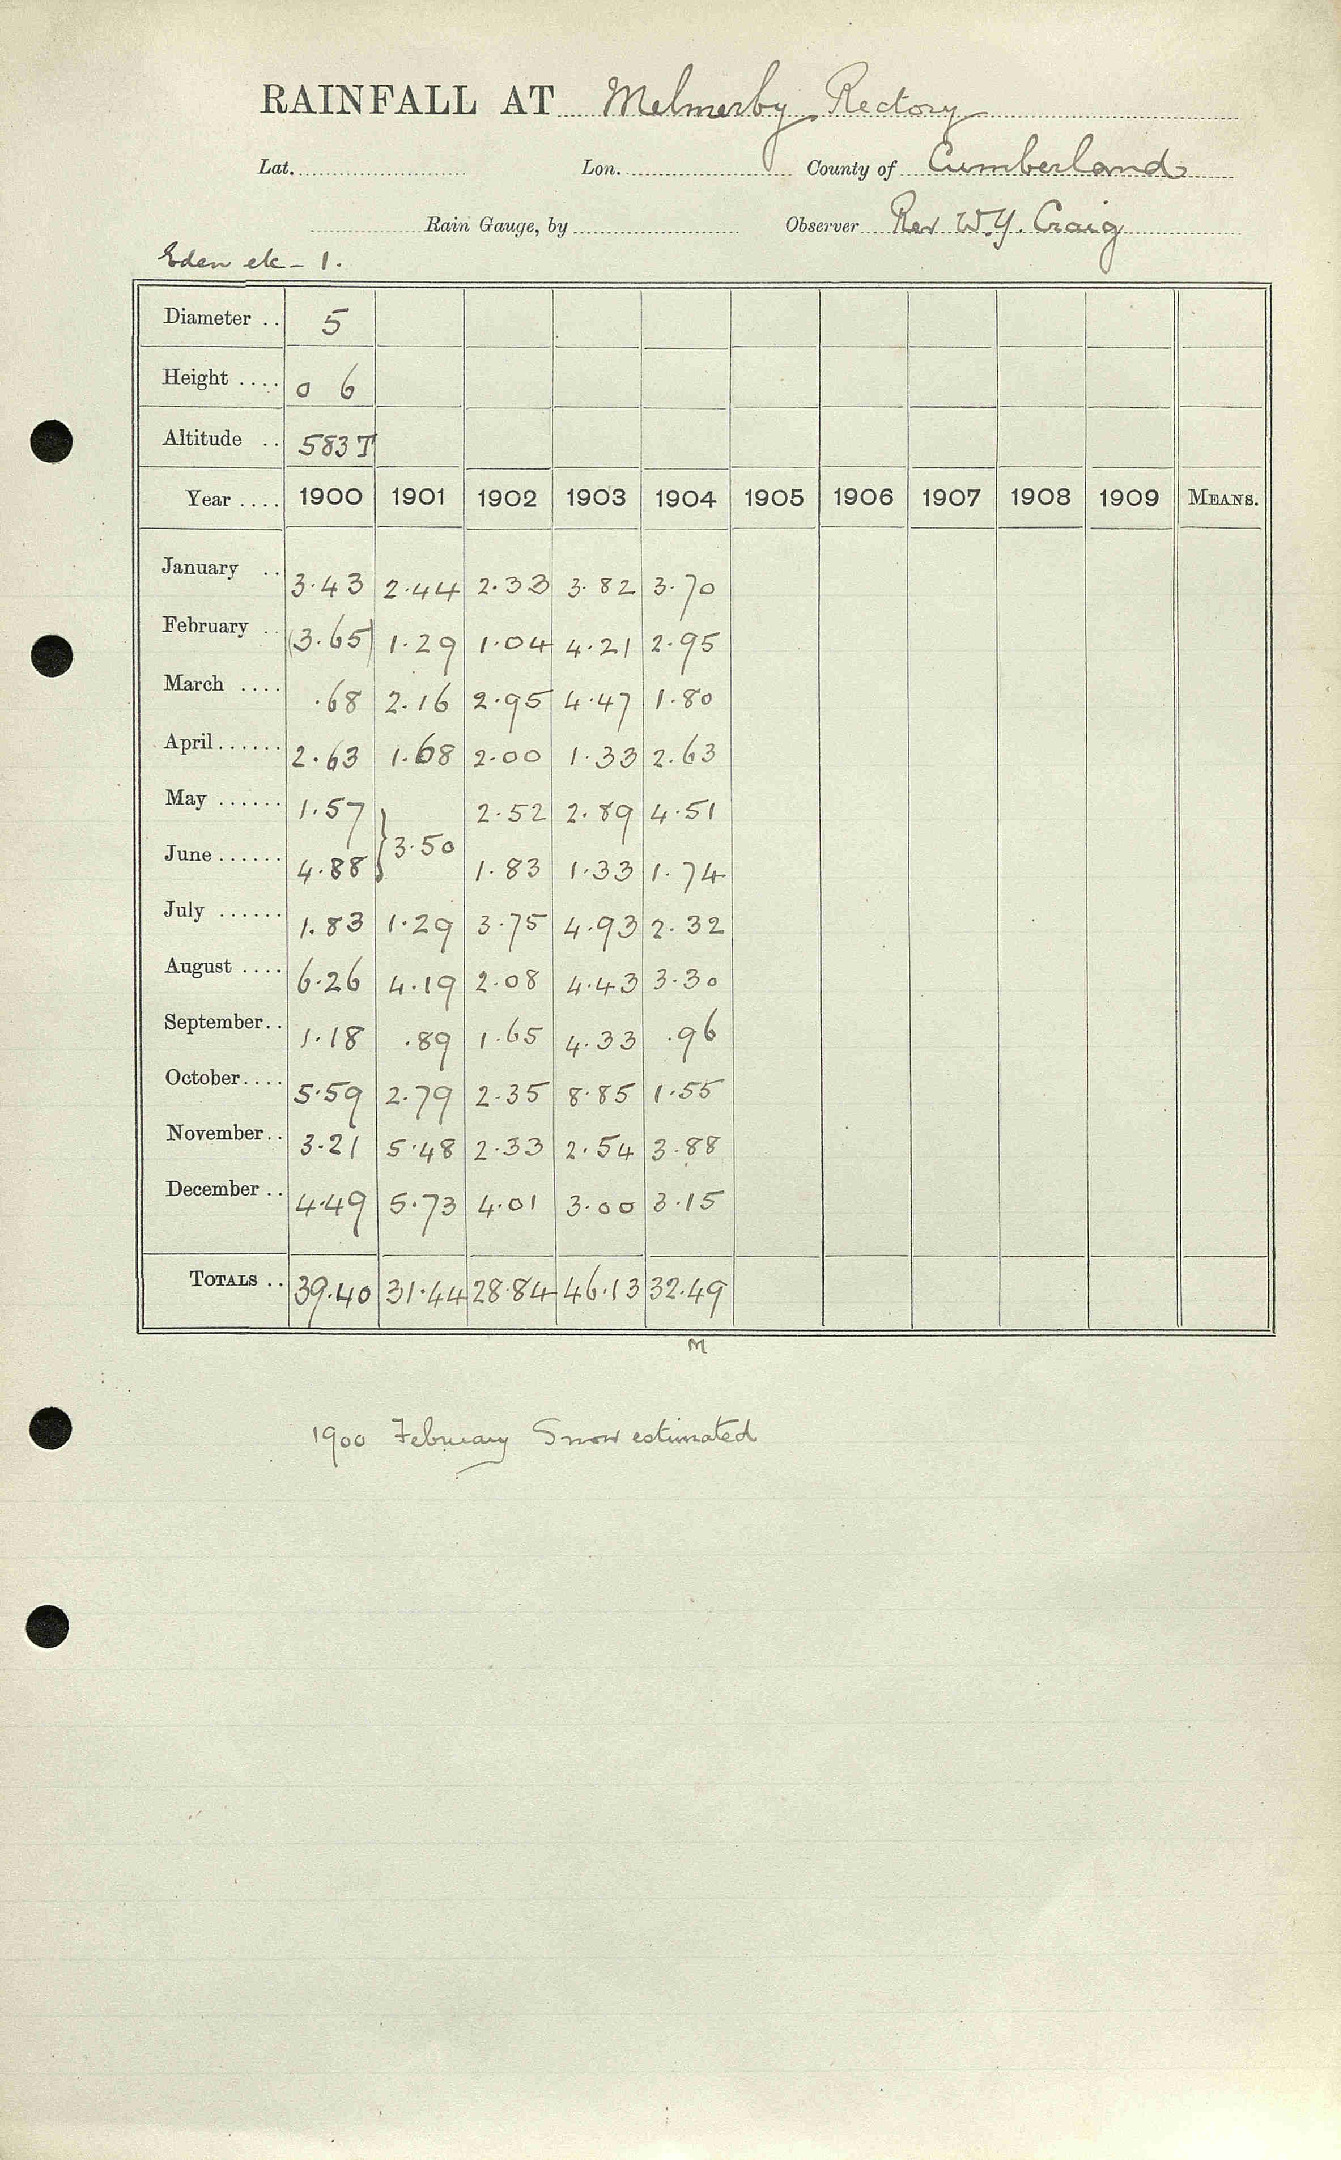 RAINFALL AT Melmerby Rectory
Lat. Lon. County of Cumberland
Rain Gauge, by Observer Rev W.Y. Craig
Eden etc - 1.
Diameter .. 5
Height .... 0 6
Altitude .. 583 T
Year .... 1900 1901 1902 1903 1904 1905 1906 1907 1908 1909 MEANS.
January .. 3.43 2.44 2.33 3.82 3.70
February .. (3.65) 1.29 1.04 4.21 2.95
March .... .68 2.16 2.95 4.47 1.80
April ...... 2.63 1.68 2.00 1.33 2.63
May ...... 1.57 2.52 2.89 4.51
} 3.50
June ...... 4.88 1.83 1.33 1.74
July ...... 1.83 1.29 3.75 4.93 2.32
August .... 6.26 4.19 2.08 4.43 3.30
September .. 1.18 .89 1.65 4.33 .96
October .... 5.59 2.79 2.35 8.85 1.55
November .. 3.21 5.48 2.33 2.54 3.88
December .. 4.49 5.73 4.01 3.00 3.15
TOTALS .. 39.40 31.44 28.84 46.13 32.49
M
1900 February Snow estimated